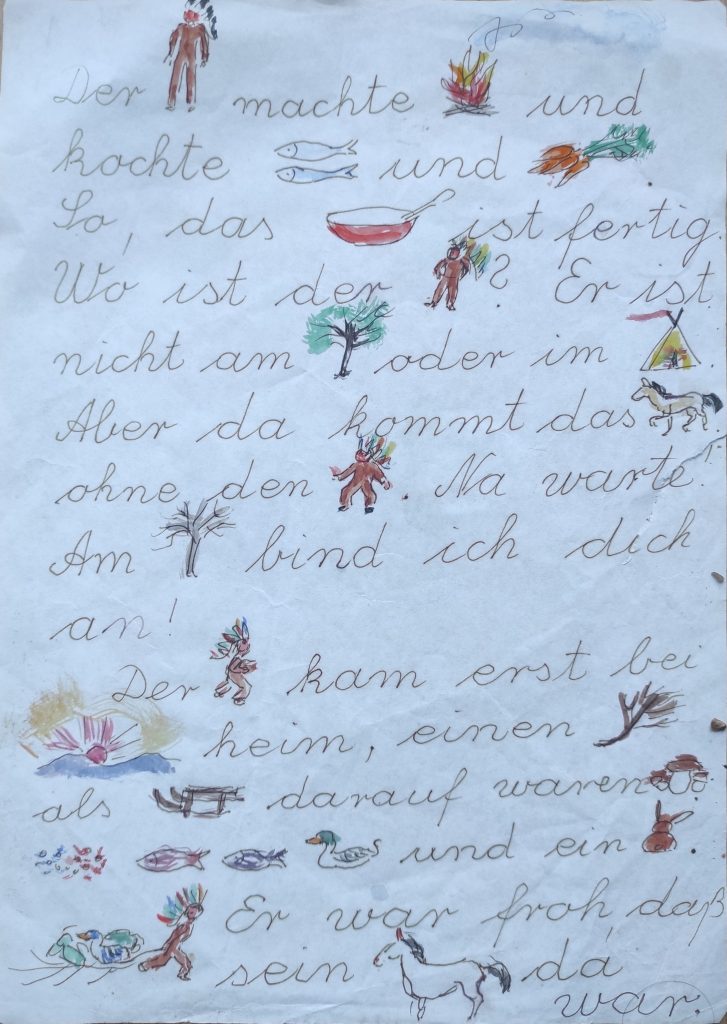 Der machte und
kochte und
So, das ist fertig.
Wo ist der ? Er ist
nicht am oder im .
Aber da kommt das
ohne den Na warte!
Am bind ich dich
an!
Der kam erst bei
heim, einen
als darauf waren
und ein .
Er war froh, daß
sein da
war.